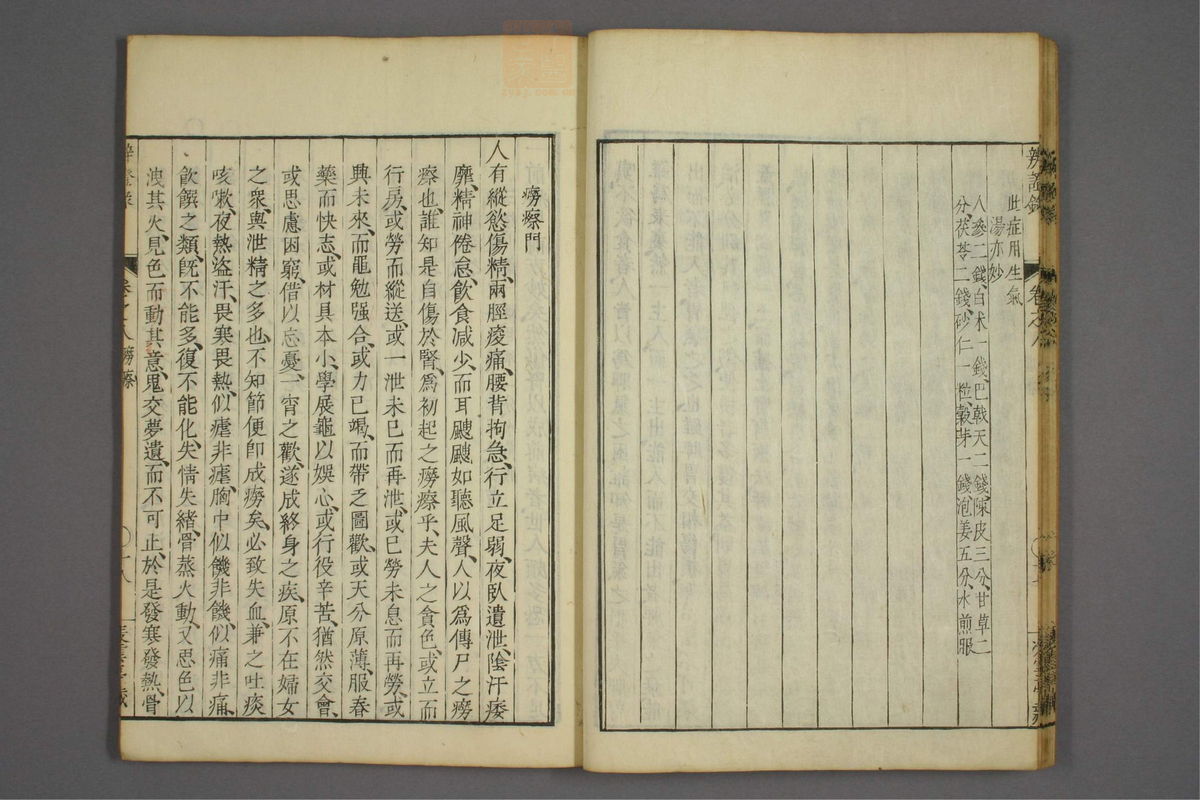 辨證錄 卷之八
此症用生氣
湯亦妙
人參二錢、白术一錢、巴戟天二錢、陳皮三分、甘草二
分、茯苓二錢、砂仁一粒、穀芽一錢、炮姜五分、水煎服
癆瘵門
人有縱慾傷精、兩脛痠痛、腰背拘急、行立足弱、夜臥遺泄、陰汗痿
靡、精神倦怠、飲食減少、而耳颼颼如聽風聲、人以為傳尸之癆
瘵也、誰知是自傷於腎、為初起之癆瘵乎、夫人之貪色、或立而
行房、或勞而縱送、或一泄未已而再泄、或已勞未息而再勞、或
興未來、而黽勉强合、或力已竭、而帶乏圖歡、或天分原薄、服春
藥而快志、或材具本小、學展龜以娛心、或行役辛苦、猶然交會、
或思慮困窮、借以忘憂、一宵之歡、遂成終身之疾、原不在婦女
之衆、與泄精之多也、不知節便卽成癆矣、必致失血、兼之吐痰
咳嗽、夜熱盜汗、畏寒畏熱、似瘧非瘧、胸中似饑非饑、似痛非痛、
飲饌之類、旣不能多、復不能化、失情失緒、骨蒸火動、又思色以
洩其火、見色而動其意、鬼交夢遺、而不可止、於是發寒發熱、骨
卷之八 癆瘵